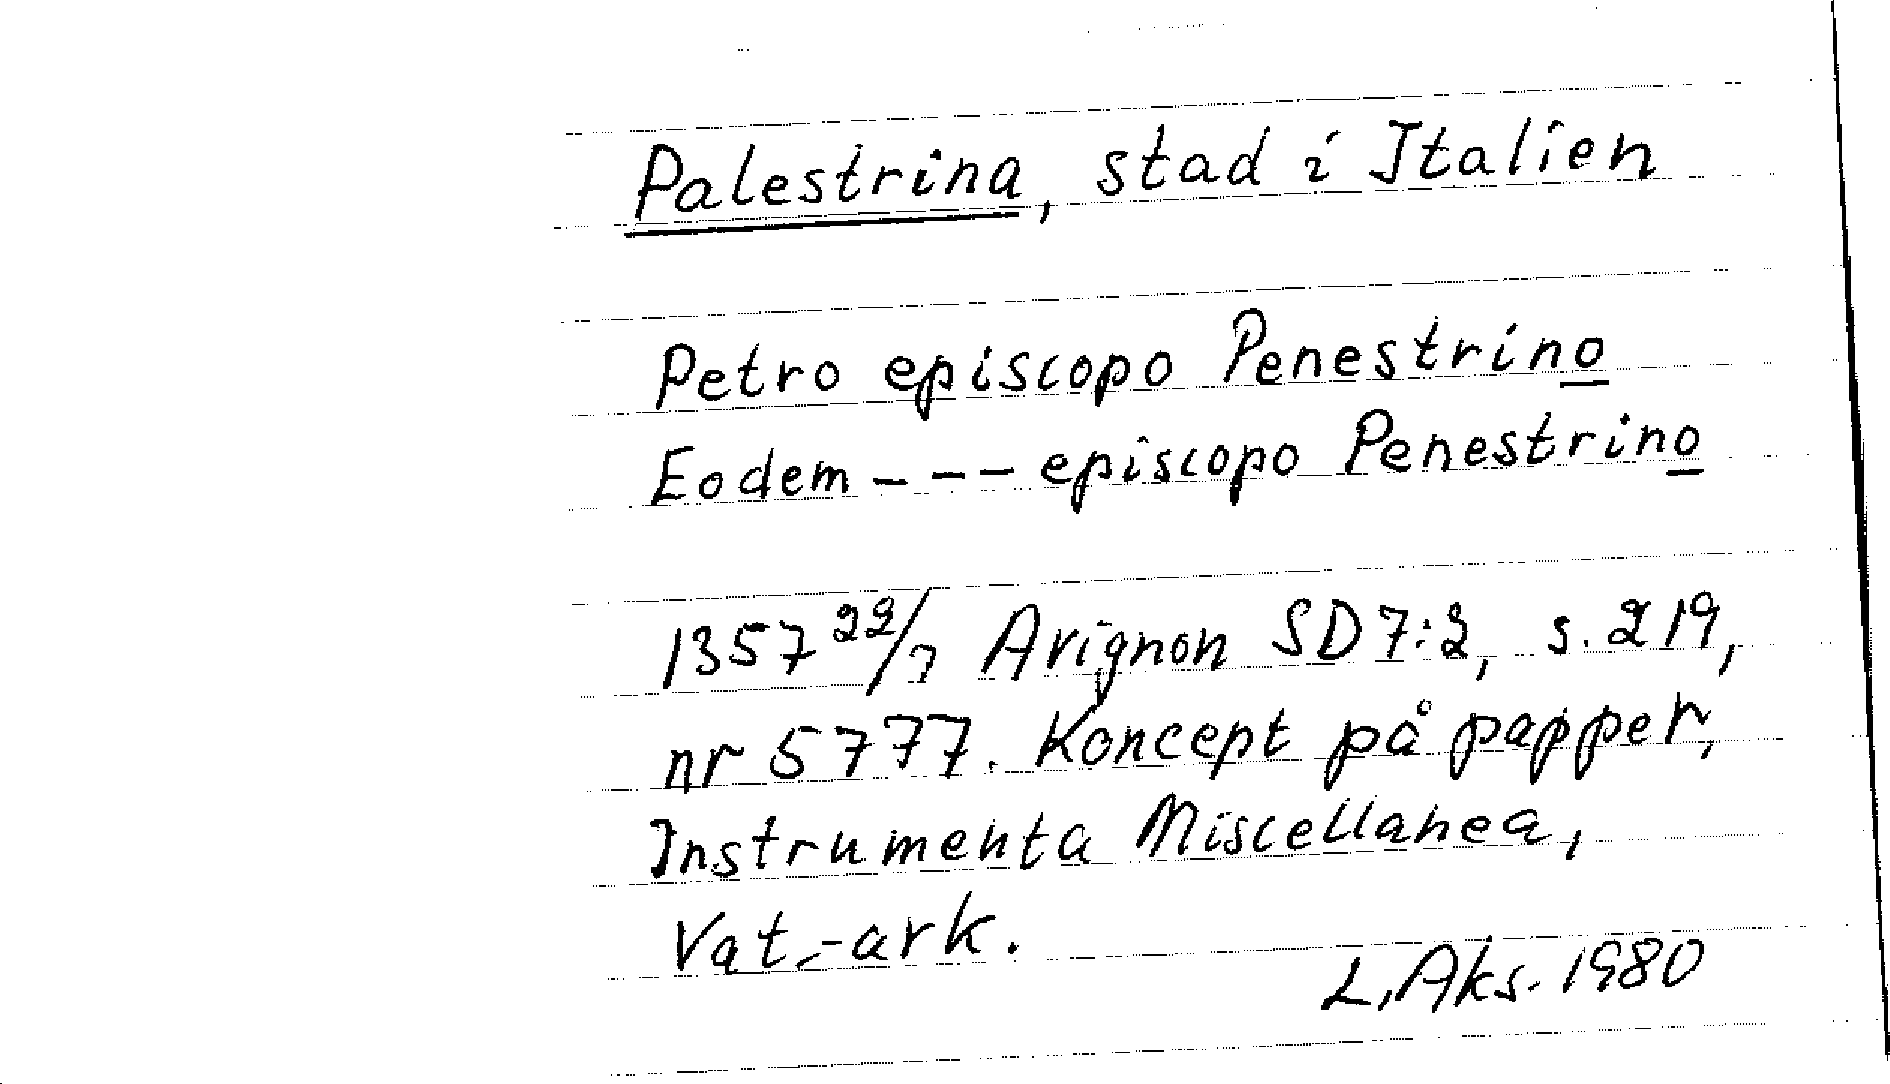 Palestrina, stad i Italien
Petro episcopo Penestrino
Eodem - - - episcopo Penestrino
1357 22/7 Avignon SD 7:2, s. 219,
nr 5777. Koncept på papper,
Instrumenta Miscellanea,
Vat.-ark.
L. Aks. 1980